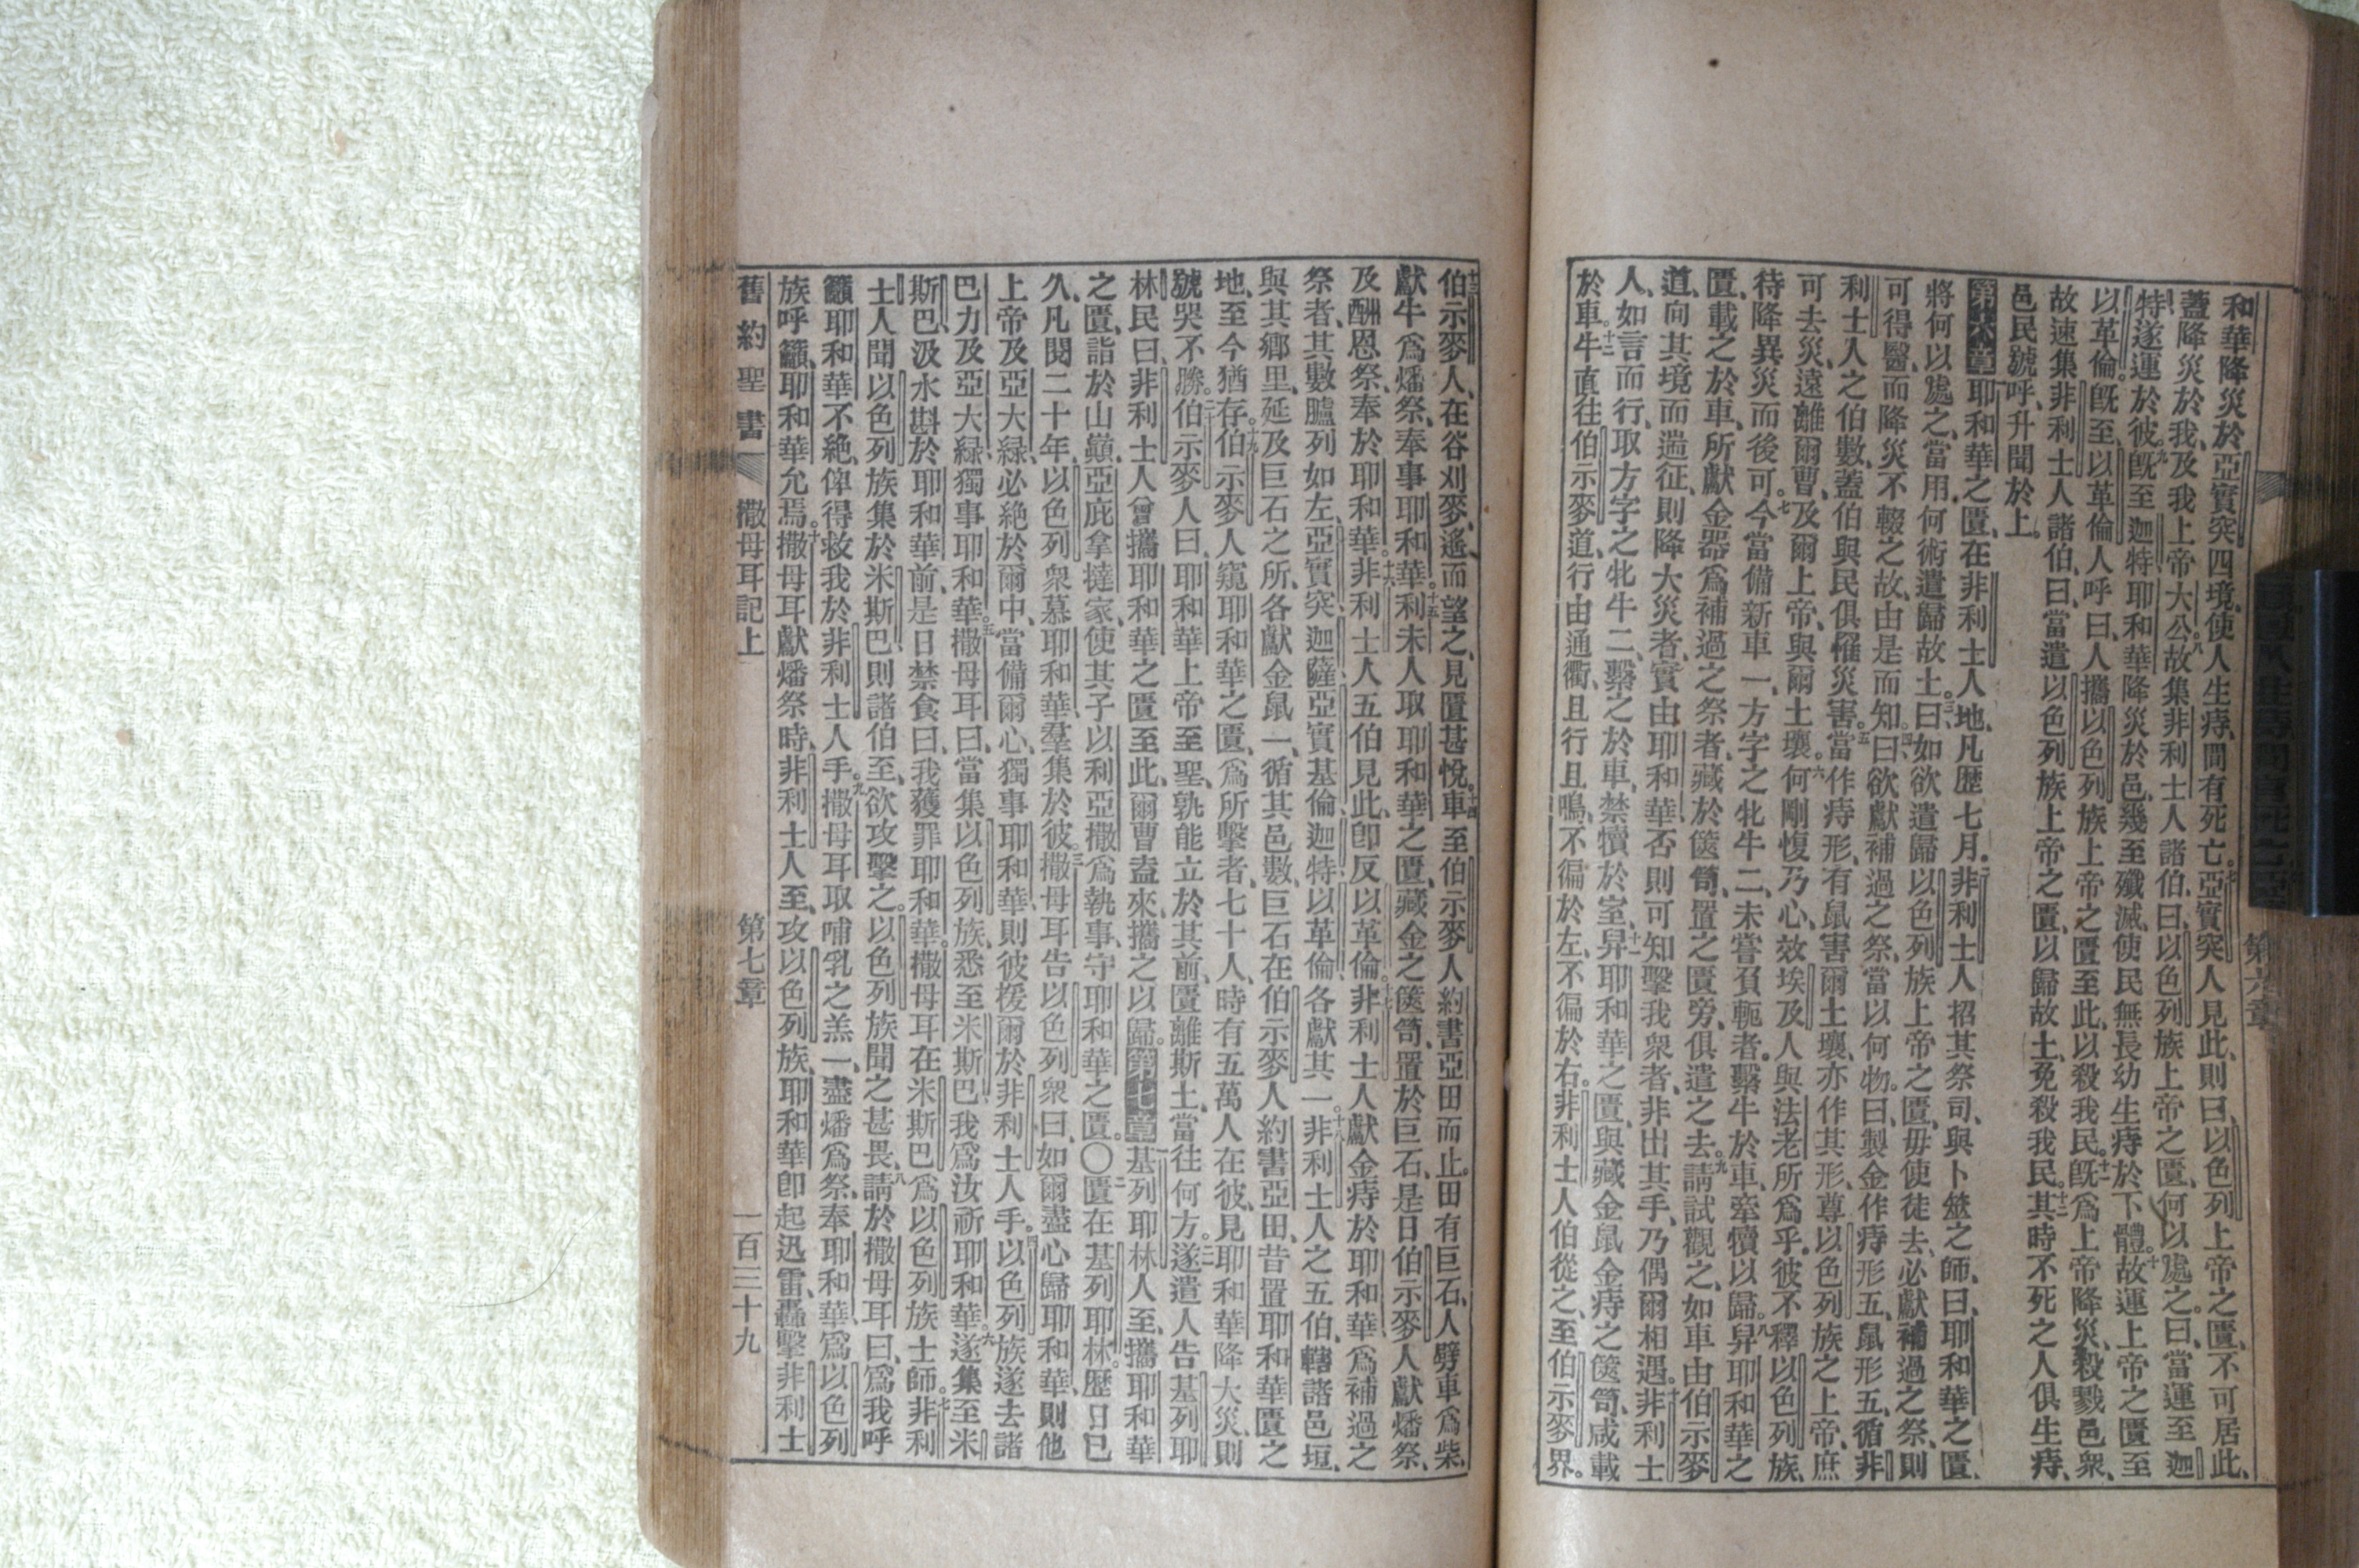 和華降災於亞實突四境、使人生痔、間有死亡。七亞實突人見此、則曰、以色列上帝之匱、不可居此、
蓋降災於我、及我上帝大公。八故集非利士人諸伯曰、以色列族上帝之匱、何以處之。曰、當運至迦
特、遂運於彼。九旣至迦特、耶和華降災於邑、幾至殲滅、使民無長幼生痔於下體。十故運上帝之匱至
以革倫。旣至以革倫、人呼曰、人攜以色列族上帝之匱至此、以殺我民。十一旣爲上帝降災、殺戮邑衆、
故速集非利士人諸伯、曰、當遣以色列族上帝之匱、以歸故土、免殺我民。十二其時不死之人俱生痔、
邑民號呼、升聞於上。
第十六章耶和華之匱、在非利士人地、凡歷七月。二非利士人招其祭司、與卜筮之師、曰、耶和華之匱、
將何以處之、當用何術遣歸故土。三曰、如欲遣歸以色列族上帝之匱、毋使徒去、必獻補過之祭、則
可得醫、而降災不輟之故、由是而知。四曰、欲獻補過之祭、當以何物。曰、製金作痔形五、鼠形五、循非
利士人之伯數、蓋伯與民俱罹災害。五當作痔形、有鼠害爾土壤、亦作其形、尊以色列族之上帝、庶
可去災、遠離爾曹、及爾上帝、與爾土壤。六何剛愎乃心、效埃及人與法老所爲乎。彼不釋以色列族、
待降異災而後可。七今當備新車一、方字之牝牛二、未嘗負軛者、繫牛於車、牽犢以歸。八舁耶和華之
匱、載之於車、所獻金器、爲補過之祭者、藏於篋笥、置之匱旁、俱遣之去。九請試觀之、如車由伯示麥
道、向其境而遄征、則降大災者、實由耶和華、否則可知擊我衆者、非出其手、乃偶爾相遇。十非利士
人、如言而行、取方字之牝牛二、繫之於車、禁犢於室、十一舁耶和華之匱、與藏金鼠金痔之篋笥、咸載
於車。十二牛直往伯示麥道、行由通衢、且行且鳴、不徧於左、不徧於右。非利士人伯從之、至伯示麥界。
十三伯示麥人、在谷刈麥、遙而望之、見匱甚悅。十四車至伯示麥人約書亞田而止。田有巨石、人劈車爲柴、
獻牛爲燔祭、奉事耶和華。十五利未人取耶和華之匱、藏金之篋笥、置於巨石、是日伯示麥人獻燔祭、
及酬恩祭、奉於耶和華。十六非利士人五伯見此、卽反以革倫。十七非利士人獻金痔於耶和華、爲補過之
祭者、其數臚列如左、亞實突、迦薩、亞實基倫、迦特、以革倫、各獻其一。十八非利士人之五伯、轄諸邑垣、
與其鄉里、延及巨石之所、各獻金鼠一、循其邑數、巨石在伯示麥人約書亞田、昔置耶和華匱之
地、至今猶存。十九伯示麥人窺耶和華之匱、爲所擊者、七十人、時有五萬人在彼、見耶和華降大災、則
號哭不勝。二十伯示麥人曰、耶和華上帝至聖、孰能立於其前、匱離斯土、當往何方。二一遂遣人告基列耶
林民曰、非利士人曾攜耶和華之匱至此、爾曹盍來、攜之以歸。第十七章基列耶林人至、攜耶和華
之匱、詣於山巔、亞庇拿撻家、使其子以利亞撒爲執事、守耶和華之匱。〇二匱在基列耶林。歷日已
久、凡閱二十年、以色列衆慕耶和華、羣集於彼。三撒母耳告以色列衆曰、如爾盡心歸耶和華、則他
上帝及亞大綠、必絕於爾中、當備爾心、獨事耶和華、則彼援爾於非利士人手。四以色列族遂去諸
巴力及亞大綠、獨事耶和華。五撒母耳曰、當集以色列族、悉至米斯巴、我爲汝祈耶和華。六遂集至米
斯巴、汲水斟於耶和華前、是日禁食、曰、我獲罪耶和華。撒母耳在米斯巴、爲以色列族士師。七非利
士人聞以色列族集於米斯巴、則諸伯至、欲攻擊之。以色列族聞之甚畏、八請於撒母耳曰、爲我呼
籲耶和華不絕、俾得救我於非利士人手。九撒母耳取哺乳之羔一、盡燔爲祭、奉耶和華、爲以色列
族呼籲、耶和華允焉。十撒母耳獻燔祭時、非利士人至、攻以色列族、耶和華卽起迅雷、轟擊非利士
舊約聖書 撒母耳記上 第七章 一百三十九
第六章